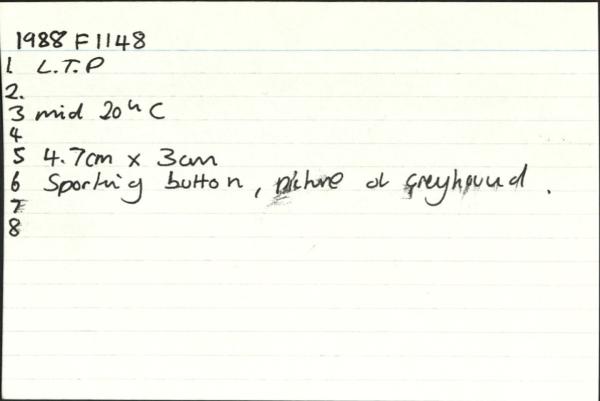 1988 F 1148
1 L.T.P
2.
3 mid 20th C
4
5 4.7cm x 3cm
6 Sporting button, picture of greyhound.
7
8